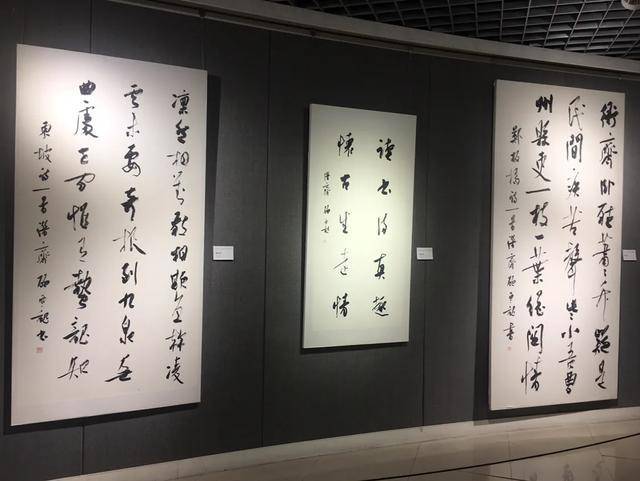 凛然相對敢相欺直幹凌
雲未要奇根到九泉無
曲處世間惟有蟄龍知
東坡詩一首
讀書得真趣
懷古生遠情
衙齋卧聽蕭蕭竹疑是
民間疾苦聲些小吾曹
州縣吏一枝一葉總關情
鄭板橋詩一首